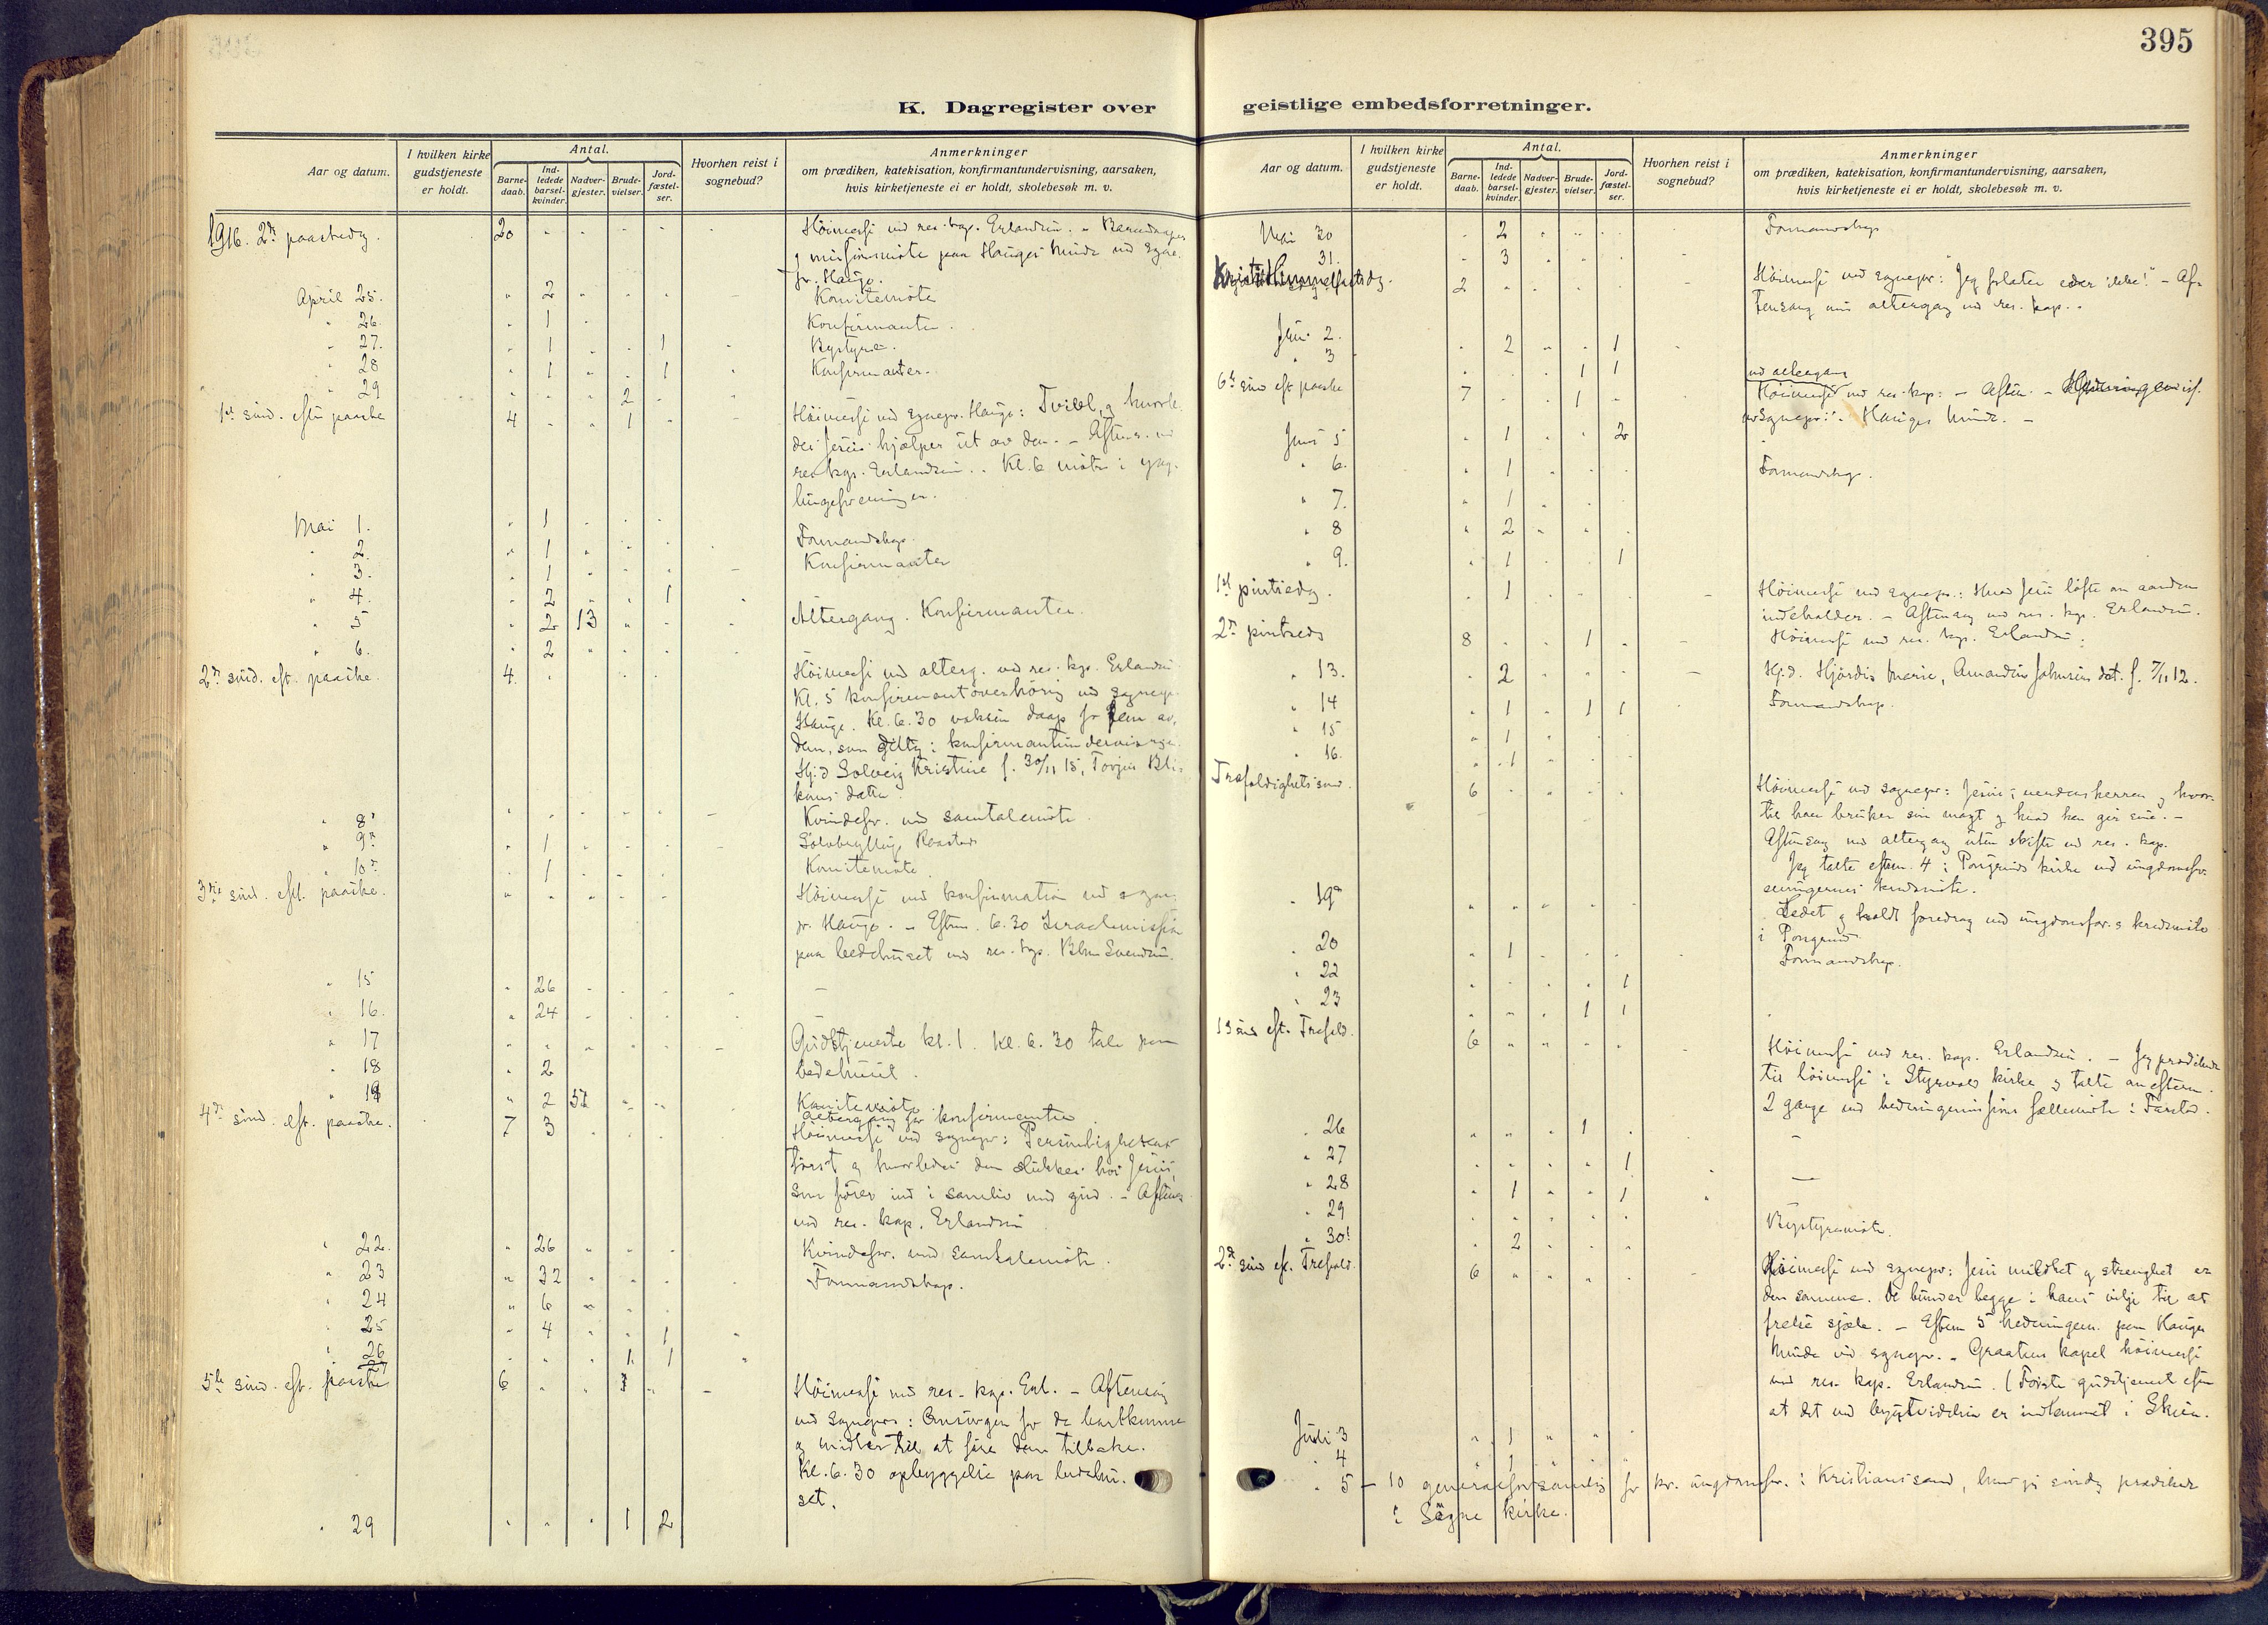 395
K. Dagregister over geistlige embedsforretninger.
Aar og datum. I hvilken kirke gudstjeneste er holdt. Antal. Barnedaab. Indledede barselkvinder. Nadvergjester. Brudevielser. Jordfæstelser. Hvorhen reist i sognebud? Anmerkninger om prædiken, katekisation, konfirmantundervisning, aarsaken, hvis kirketjeneste ei er holdt, skolebesøk m. v.
1916. 2den paaskedag. 20 Høimesse ved res. kap. Erlandsen. - Barnedaaper
og misjonsmøte paa Hauges Minde ved sogne-
pr. Hauge.
April 25. 2 Komitemøte
" 26. 1 Konfirmanter.
" 27. 1 1 Bystyre.
" 28 1 1 Konfirmanter.
" 29 2
1st sønd. efter paaske 4 1 Høimesse ved sognepr. Hauge: Tvivl, og hvorle-
des Jesus hjælper ut av den. - Aftens. ved
res. kap. Erlandsen. Kl. 6 møte i yng-
lingeforeningen.
Mai 1. 1
" 2. 1 Formandskap.
" 3. 1 Konfirmanter
" 4. 2 1
" 5 2 13 Altergang. Konfirmanter.
" 6. 2
2den sønd. eft. paaske. 4 Høimesse med alterg. ved res. kap. Erlandsen
Kl. 5 konfirmantoverhøring ved sognepr.
Hauge. Kl. 6.30 voksen daap for fem av
dem, som deltog i konfirmantundervisningen.
Hj.d Solveig Kristine f. 30/11 15, Torjus
datter
" 8. Kvindefor. med samtalemøte.
" 9. 1 Sølvbryllup
" 10. 1 Komitemøte.
3die sønd. eft. paaske. Høimesse med konfirmation ved sogne-
pr. Hauge. - Efterm. 6.30 Israelsmission
paa bedehuset ved res. kap. Svendsen.
" 15 26 -
" 16. 24 -
" 17 Gudstjeneste kl. 1. Kl. 6.30 tale paa
" 18 2 bedehuset.
" 19 2 51 Komitemøte.
altergang for konfirmanter
4de sønd. eft. paaske. 7 3 Høimesse ved sognepr: Personlighetens
tørst og hvorledes den slukkes hos Jesus,
som fører ind i samliv med gud. - Aftens.
ved res. kap. Erlandsen
" 22. 26 Kvindefor. med samtalemøte.
" 23 32 Formandskap.
" 24 6
" 25 4 1
" 26 1 1
27
5te sønd. eft. paaske 6 1 Høimesse ved res. kap. Erl. - Aftensang
ved sognepr: Omsorgen for de bortkomne
og midler til at føre dem tilbake.
Kl. 6.30 opbyggelse paa bedehu-
set.
" 29 1 2
Mai 30 2 Formandskap
" 31. 3
Kristi Himmelfartsdag. 2 Høimesse ved sognepr: "Jeg forlater eder ikke!" - Af-
tensang med altergang ved res. kap.
Juni 2. 2 1
" 3 1 1
6te sønd eft paaske 7 1 med altergang
Høimesse ved res. kap: - Aften -
ved sognepr: Hauges Minde. -
Juni 5 1 2
" 6. 1 Formandskap.
" 7. 1
" 8 2
" 9. 1 1
1st pintsedag. 1 Høimesse ved sognepr: Hvad Jesu løfte om aanden
indeholder. - Aftensang ved res. kap. Erlandsen.
2den pintsed. 8 1 Høimesse ved res. kap. Erlandsen.
" 13. 2 Hj.d. Hjørdis Marie, Amandus Johnsens dat. f. 7/11 12.
" 14 1 1 1 Formandskap.
" 15 1
" 16. 1
Trefoldighetssønd. 6 Høimesse ved sognepr: Jesus, verdensherren og hvor-
til han bruker sin magt og hvad han gir sine. -
Aftensang med altergang uten skrifte ved res. kap.
Jeg talte efterm. 4 i Porsgrunds kirke ved ungdomsfor-
eningernes kredsmøte.
" 19de Ledet og holdt foredrag ved ungdomsfor.s kredsmøte
i Porsgrund.
" 20 1 Formandskap.
" 22 1
" 23 1 1
1 sønd eft. Trefold. 6 Høimesse ved res. kap. Erlandsen. - Jeg prædikede
til høimesse i kirke og talte om efterm.
2 gange ved hedningemissions fællesmøte i
" 26 1 -
" 27 1
" 28 1 1 -
" 29 Bystyremøte.
" 30. 2
2den sønd ef. Trefold. 6 Høimesse ved sognepr: Jesu mildhet og strenghet er
den samme. De bunder begge i hans vilje til at
frelse sjæle. - Efterm 5 hedningem. paa Hauges
Minde ved sognepr. - Graatens kapel høimesse
ved res. kap. Erlandsen. (Første gudstjenest efter
at det ved byutvidelsen er indlemmet i Skien.
Juli 3 1
" 4 1
" 5 - 10 generalforsamling for kr. ungdomsfor. i Kristiansand, hvor jeg søndag prædiket
i Søgne kirke.